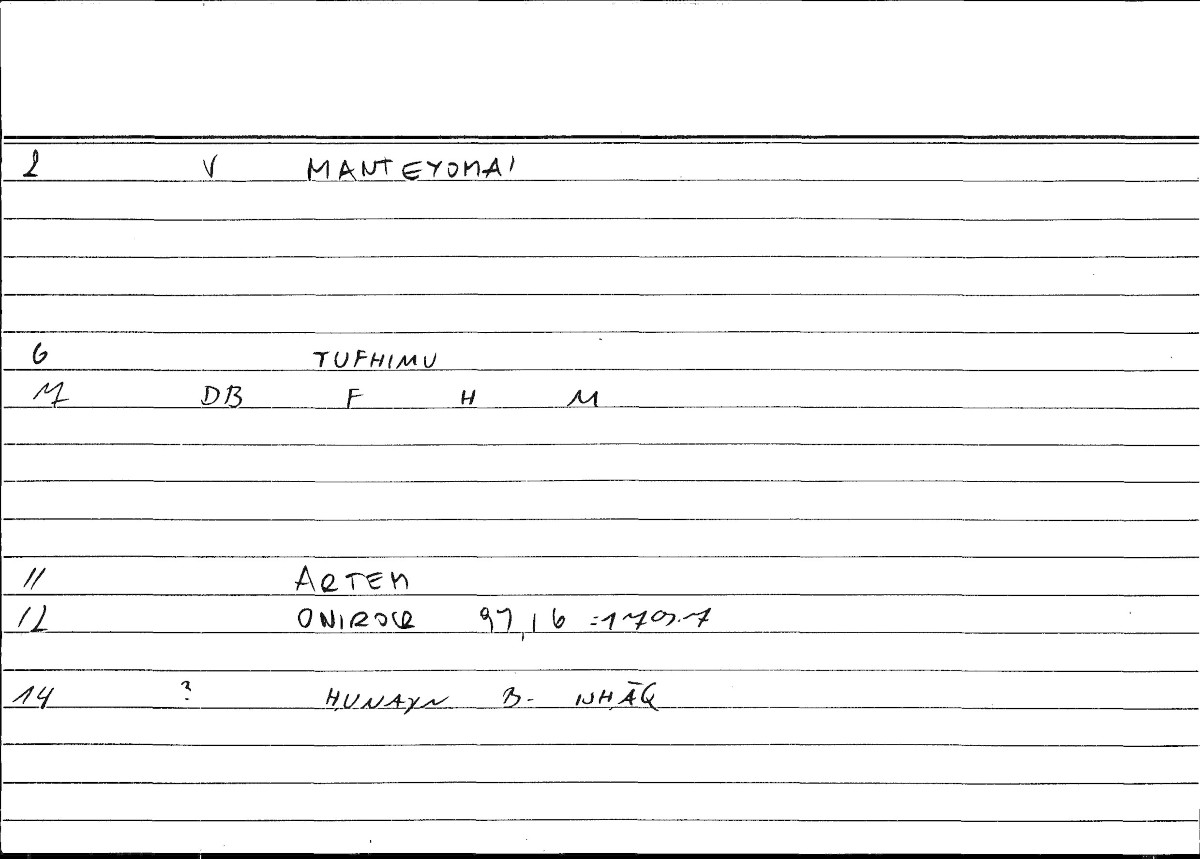 2 V MANTEYOMAI
6 TUFHIMU
7 DB F H M
11 ARTEM
12 ONIROCR 97,16
14 ? ḤUNAYN B. ISḤĀQ